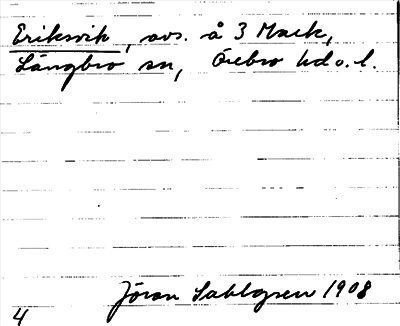 Eriksvik, avs. å 3 Mark,
Långbro sn, Örebro hd o. l.
Jöran Sahlgren 1908
4